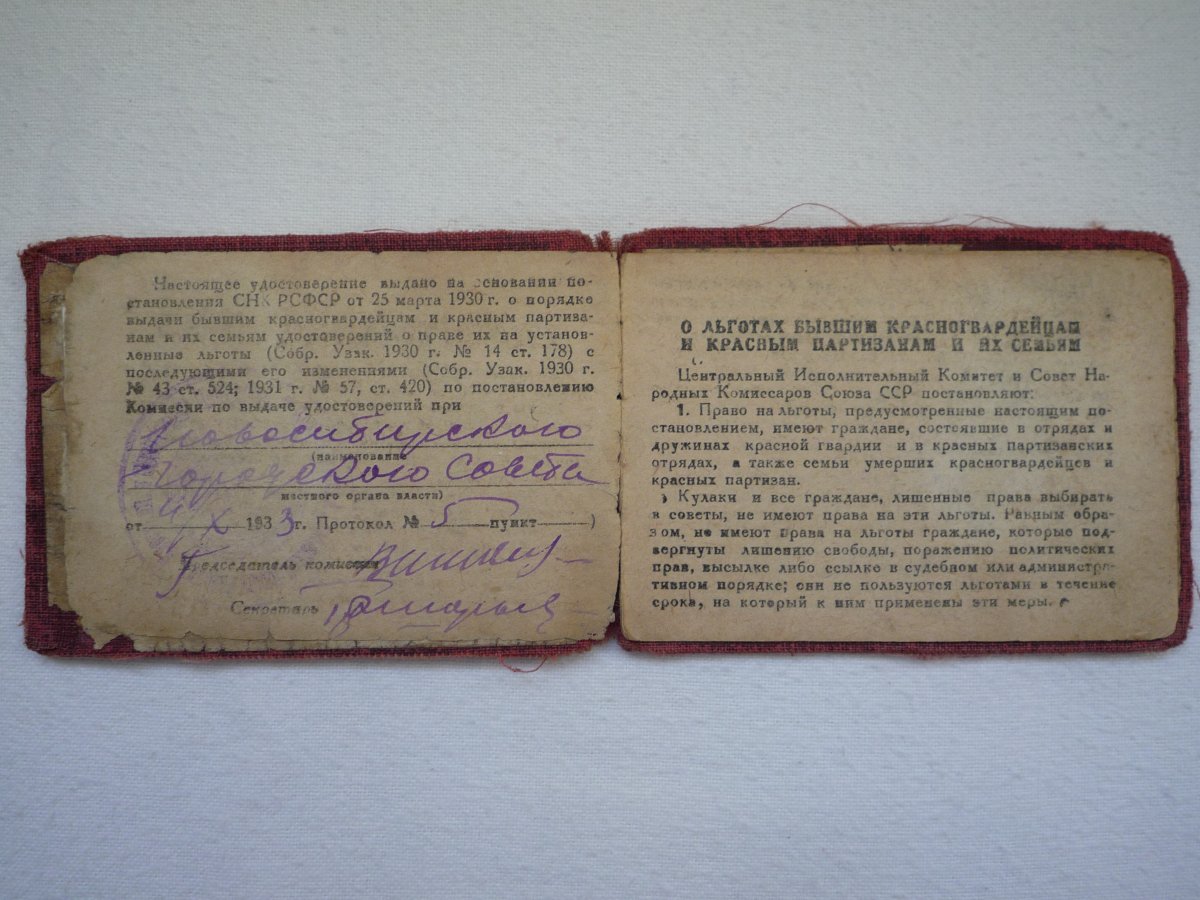 Настоящее удостоверение выдано на основании по-
становления СНК РСФСР от 25 марта 1930 г. о порядке
выдачи бывшим красногвардейцам и красным партиза-
нам и их семьям удостоверений о праве их на установ-
ленные льготы (Собр. Узак. 1930 г. № 14 ст. 178) с
последующими его изменениями (Собр. Узак. 1930 г.
№ 43 ст. 524; 1931 г. № 57, ст. 420) по постановлению
Комиссии по выдаче удостоверений при
Новосибирского
(наименование
городского совета
местного органа власти)
от X 1933 г. Протокол № 5 пункт )
Председатель комиссии
Секретарь
О ЛЬГОТАХ БЫВШИМ КРАСНОГВАРДЕЙЦАМ
И КРАСНЫМ ПАРТИЗАНАМ И ИХ СЕМЬЯМ
Центральный Исполнительный Комитет и Совет На-
родных Комиссаров Союза ССР постановляют:
1. Право на льготы, предусмотренные настоящим по-
становлением, имеют граждане, состоявшие в отрядах и
дружинах красной гвардии и в красных партизанских
отрядах, а также семьи умерших красногвардейцев и
красных партизан.
Кулаки и все граждане, лишенные права выбирать
в советы, не имеют права на эти льготы. Равным обра-
зом, не имеют права на льготы граждане, которые под-
вергнуты лишению свободы, поражению политических
прав, высылке либо ссылке в судебном или администра-
тивном порядке; они не пользуются льготами в течение
срока, на который к ним применены эти меры.